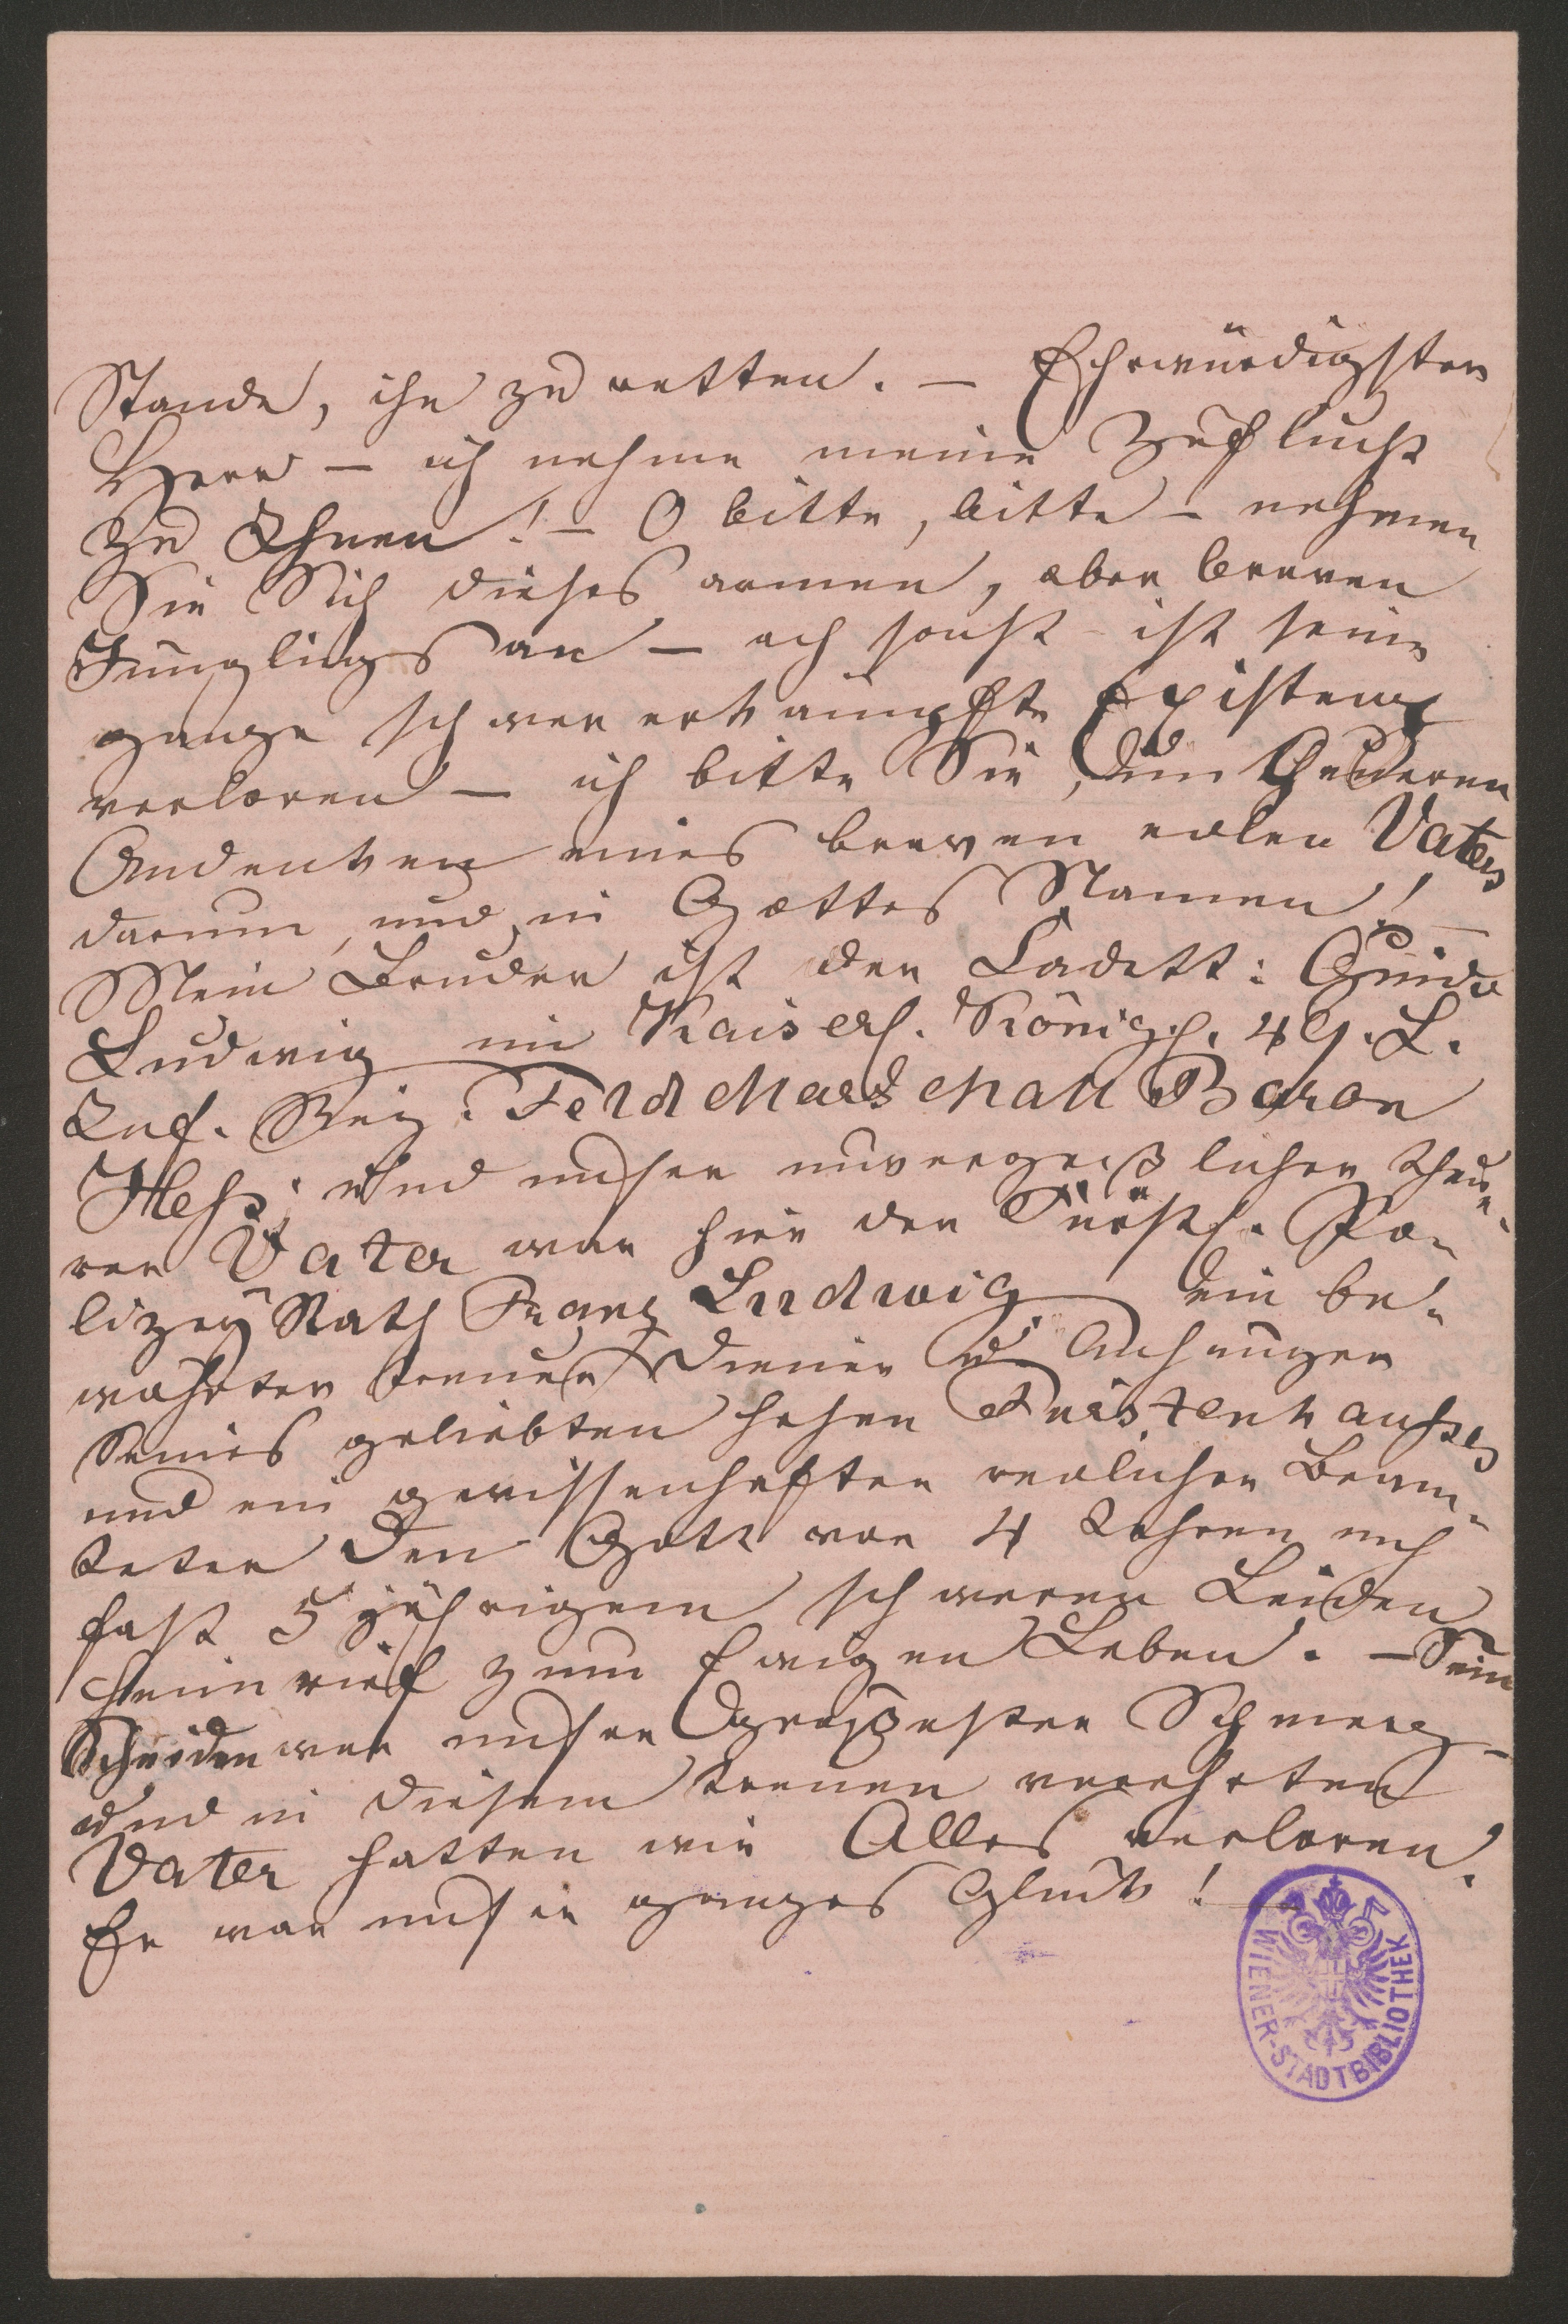 Stande, ihn zu retten. — Ehrwürdigster
Herr — ich nehme meine Zuflucht
zu Ihnen! — O bitte, bitte — nehmen
Sie Sich dieses armen, aber braven
Jünglings an — ach sonst ist seine
ganze schwer erkämpfte Existenz
verloren — ich bitte Sie, beim theueren
Andenken eines braven edlen Vaters
darum, und in Gottes Namen! —
Mein Bruder ist der Cadett: Guido
Ludwig im Kaiserl. Königl. 49. L.
Inf. Reg. Feld Marschall Baron
Hess; und unser unvergeßlicher theue-
rer Vater war hier der Fürstl. Po-
lizey Rath Franz Ludwig ein be-
währter treuer Diener u. Anhänger
Seines geliebten hohen Fürstenhauses
und ein gewissenhafter redlicher Beam-
teter den Gott vor 4 Jahren nach
fast 5 jährigem schweren Leiden
heim rief zum Ewigen Leben. — Sein
Scheiden war unser größester Schmerz —
und in diesem treuen verehrten
Vater hatten wir Alles verloren.
Er war unser ganzes Glück! —
WIENER-STADTBIBLIOTHEK